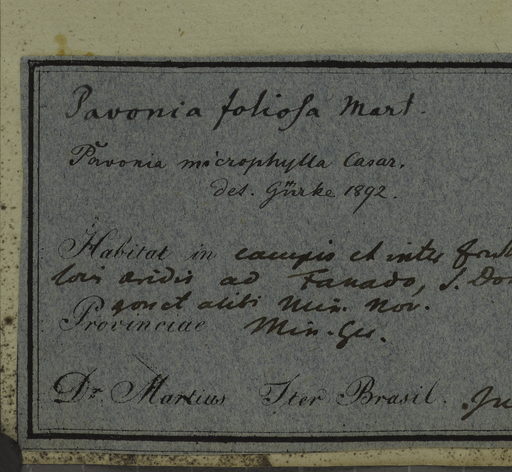 Pavonia foliosa Mart.
Pavonia microphylla Casar.
det. Gürke 1892.
Habitat in campis et inter
aridis ad Fanado, S.
et alibi Min. Nov.
Provinciae Min. Ger.
Dr. Martius Iter Brasil.